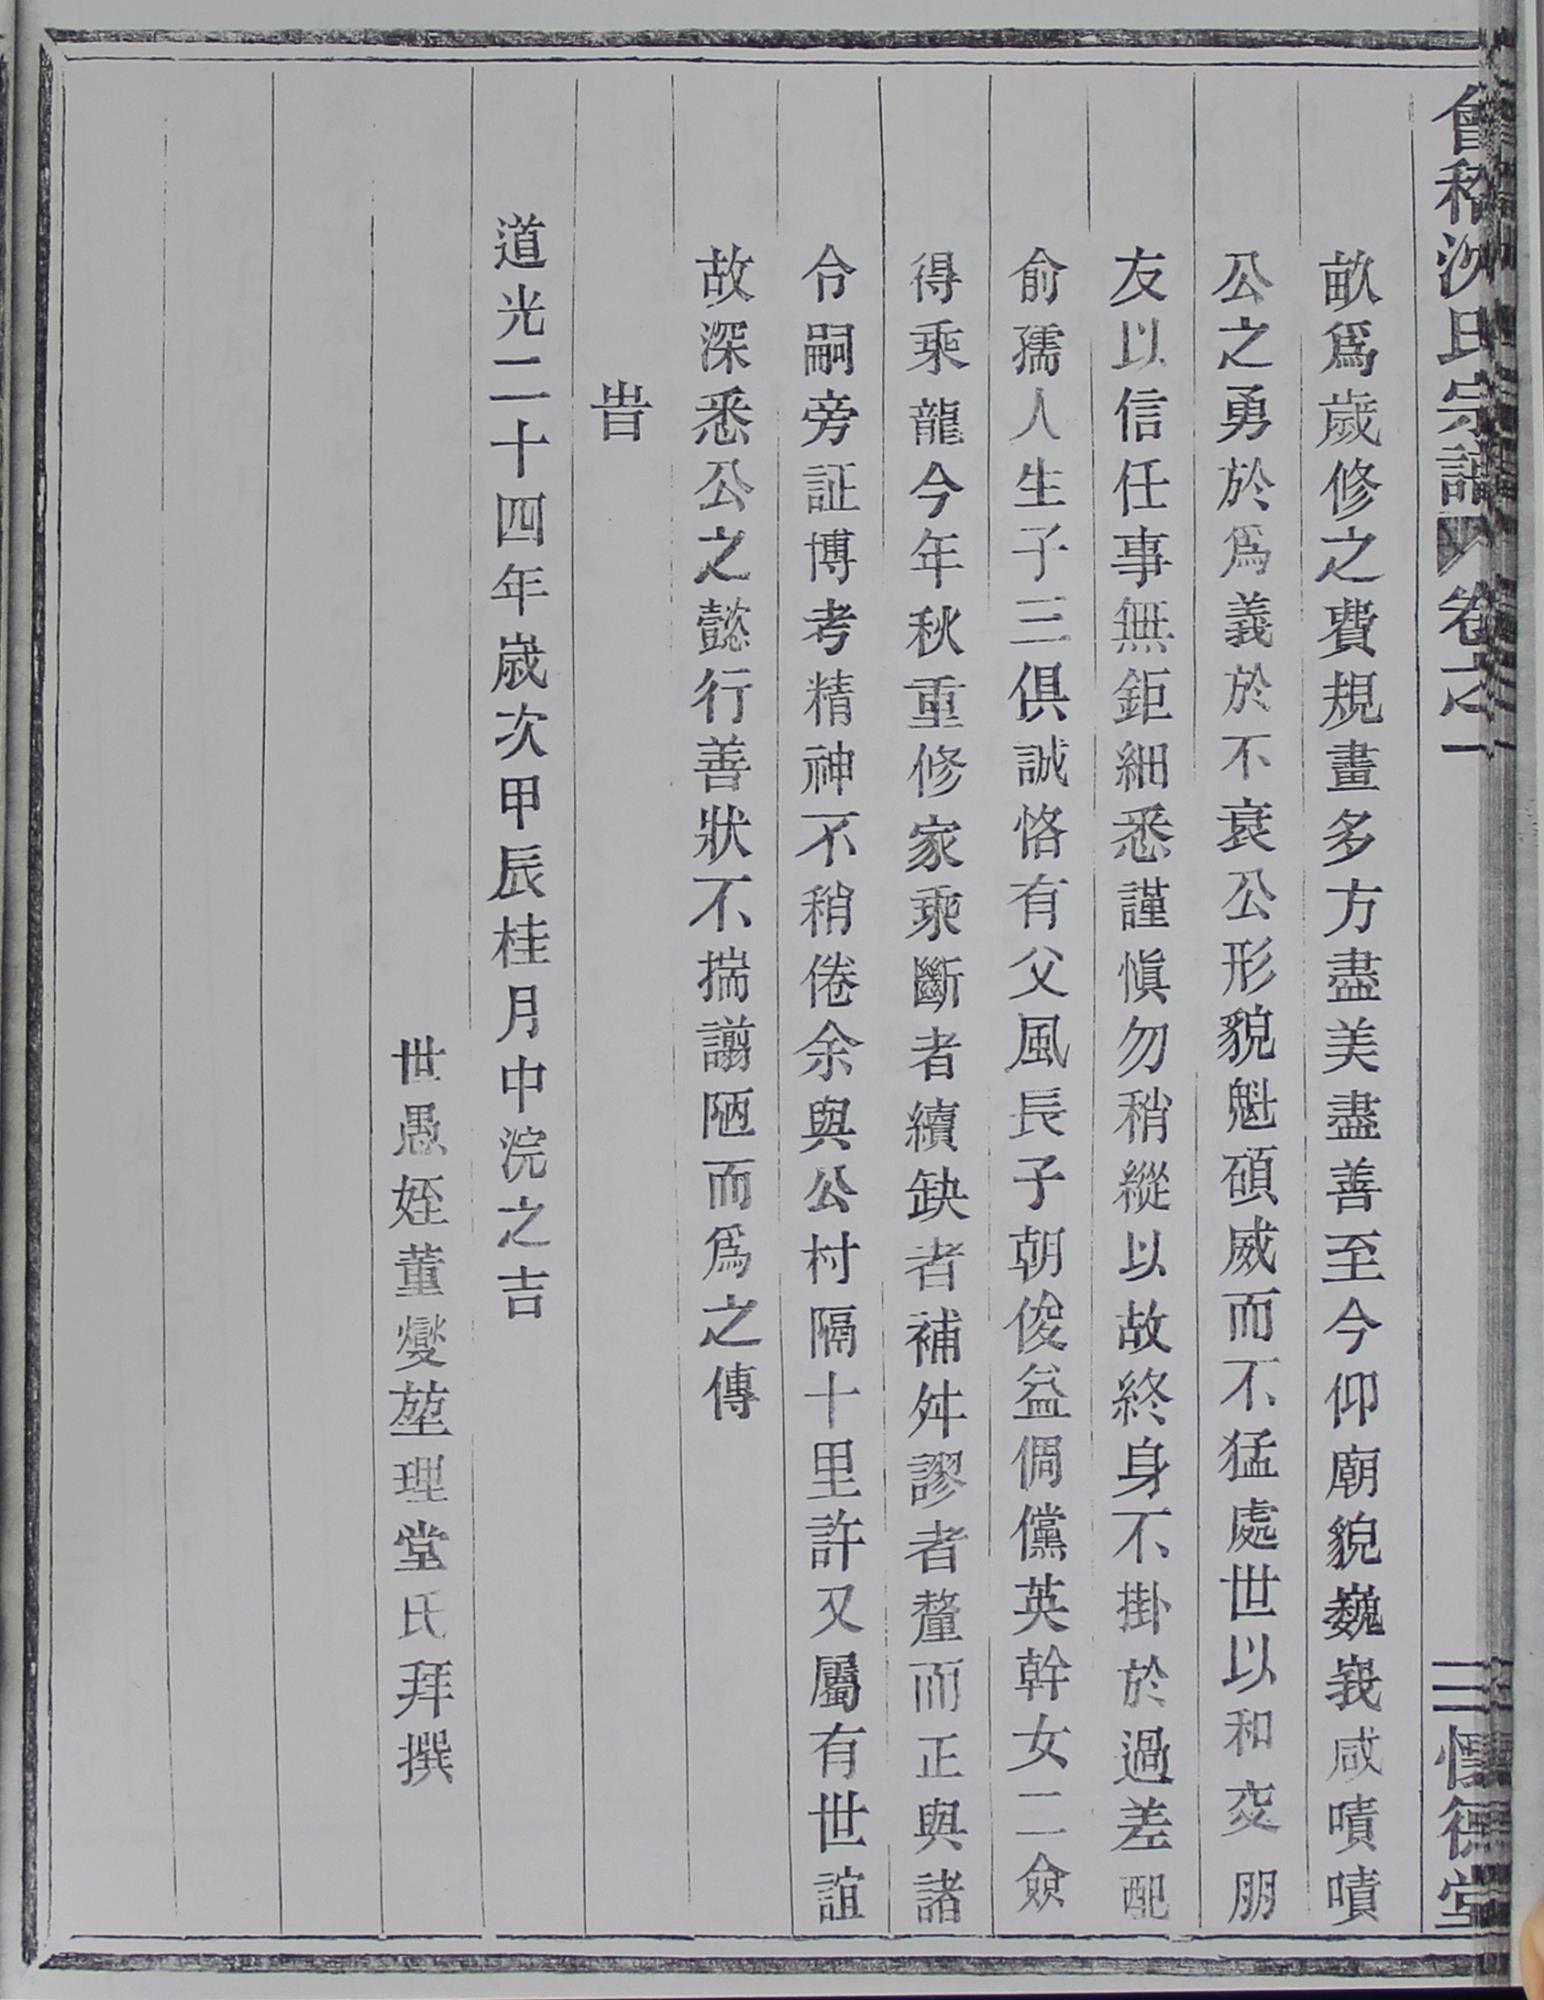 會稽沈氏宗譜 卷之一 三 懷德堂
畝爲歲修之費規畫多方盡美盡善至今仰廟貌巍峩咸嘖嘖
公之勇於爲義於不衰公形貌魁碩威而不猛處世以和交朋
友以信任事無鉅細悉謹愼勿稍縱以故終身不掛於過差配
俞孺人生子三俱誠恪有父風長子朝俊益倜儻英幹女二僉
得乘龍今年秋重修家乘斷者續缺者補舛謬者釐而正與諸
令嗣旁証博考精神不稍倦余與公村隔十里許又屬有世誼
故深悉公之懿行善狀不揣譾陋而爲之傳
旹
道光二十四年歲次甲辰桂月中浣之吉
世愚姪董燮堃理堂氏拜撰